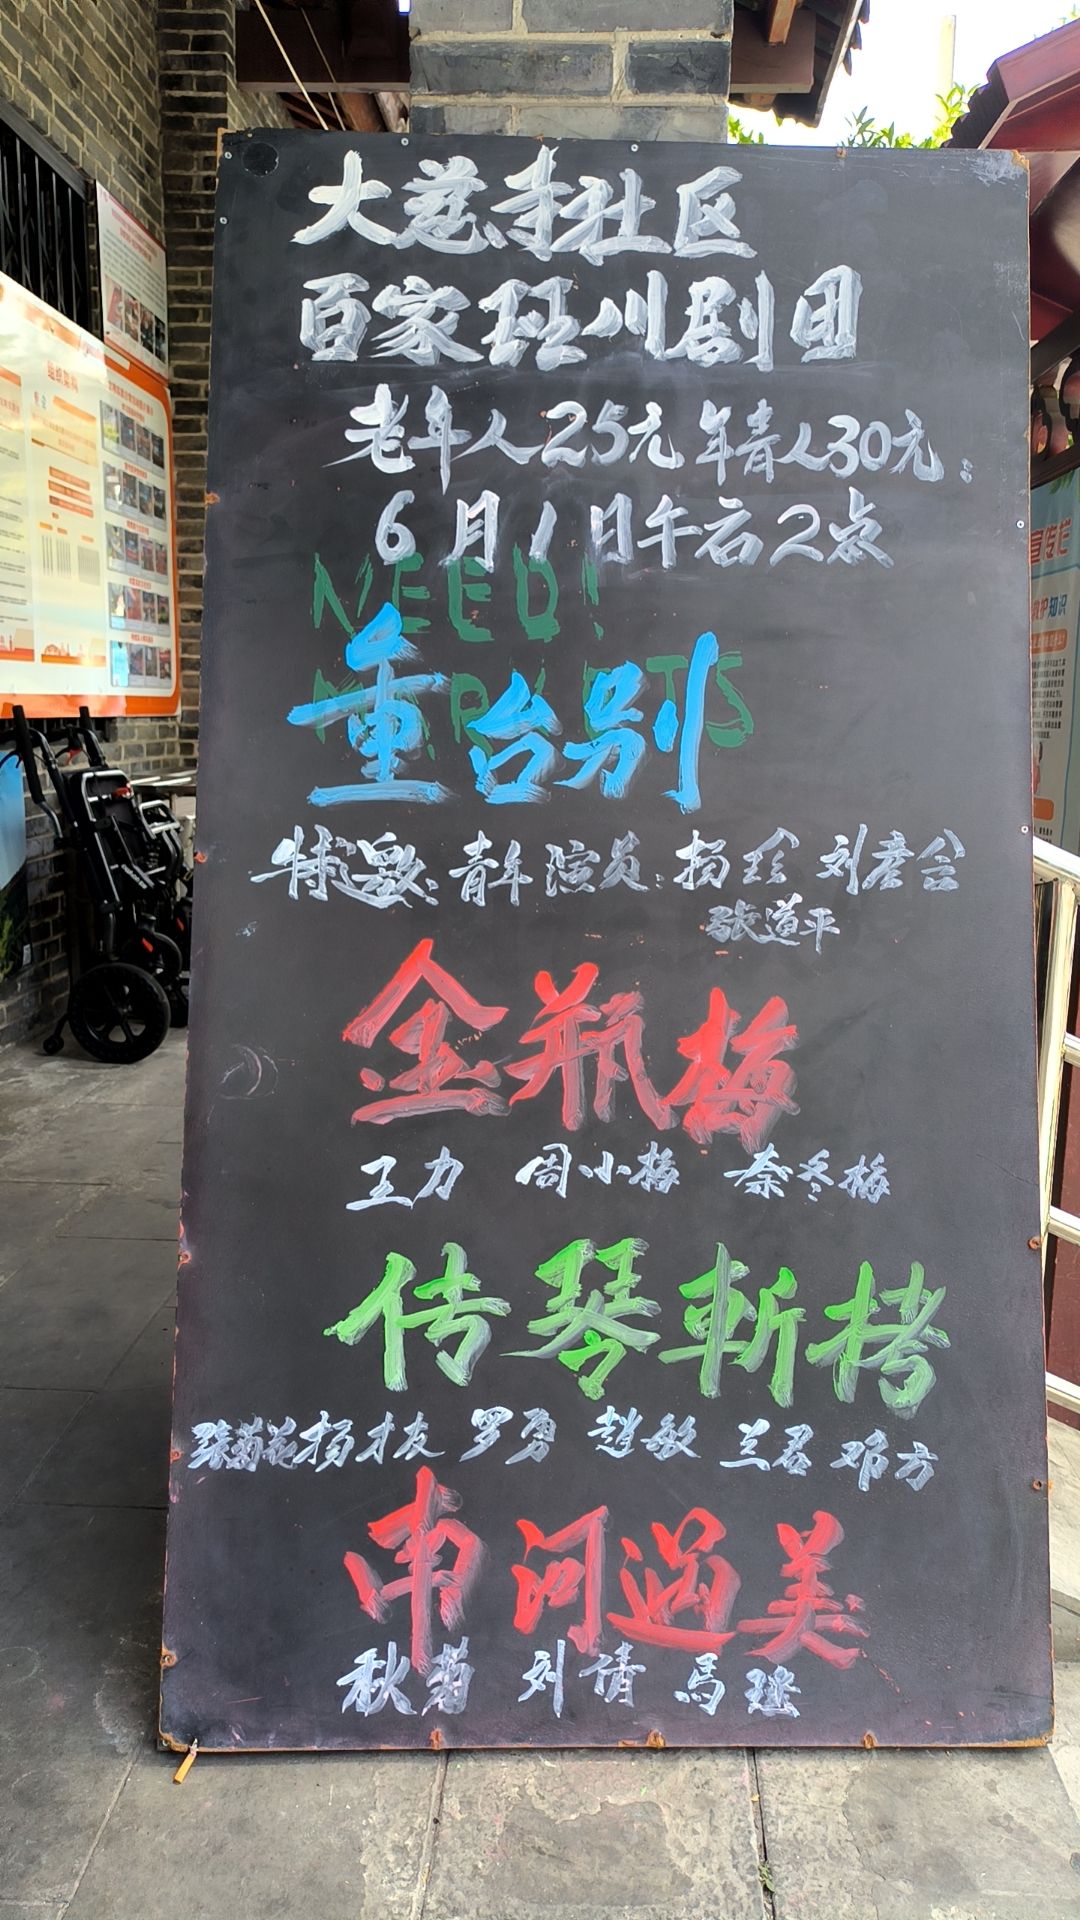 大慈寺社区
百家班川剧团
老年人25元 年青人30元:
6月1日午后2点
NEED!
MARKETS
重台别
特邀:青年演员:杨珍 刘彦会
张道平
金瓶梅
王力 周小梅 秦冬梅
传琴斩拷
张菊花 杨才友 罗勇 赵敏 兰君 邓方
南河遇美
秋菊 刘倩 马璐
组织架构
宣传栏
救护知识